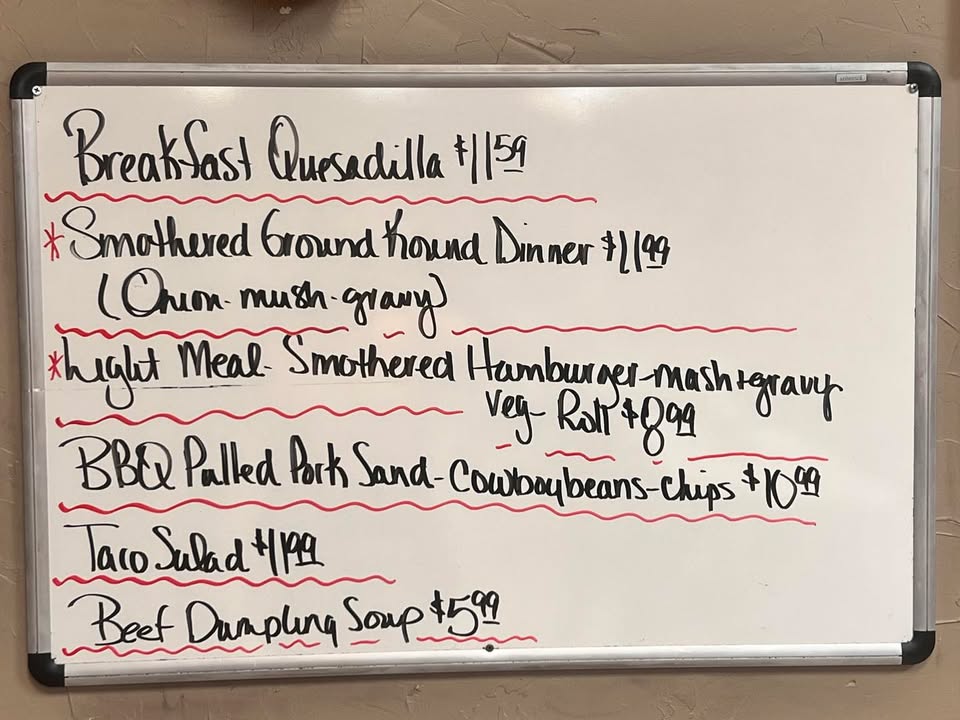 Breakfast Quesadilla $11.59
*Smothered Ground Round Dinner $11.99
(Onion-mush-gravy)
*Light Meal-Smothered Hamburger-mash+gravy
Veg-Roll $8.99
BBQ Pulled Pork Sand-Cowboybeans-chips $10.99
Taco Salad $11.99
Beef Dumpling Soup $5.99